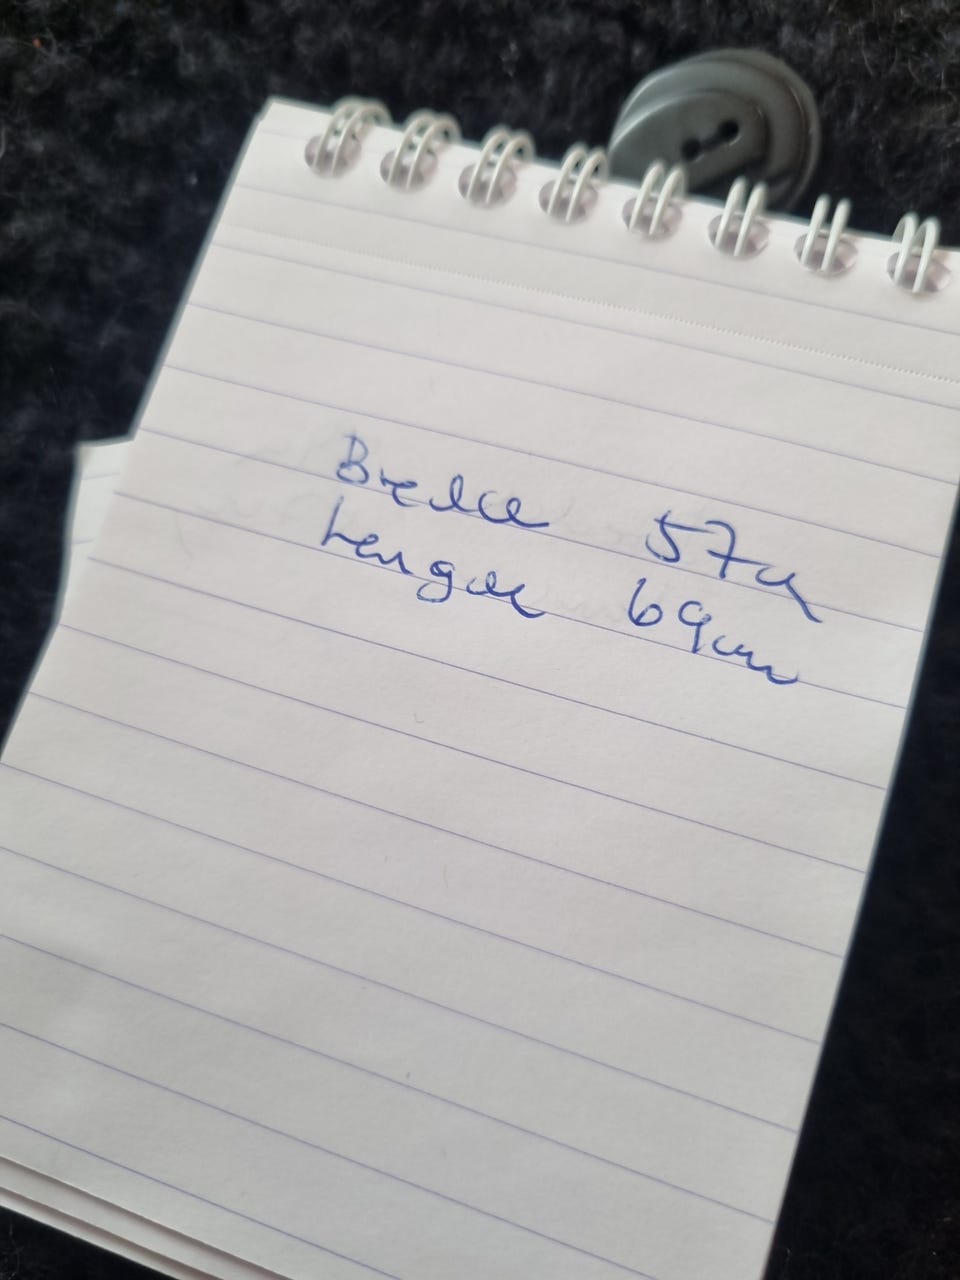 Breite 57cm
Länge 69cm